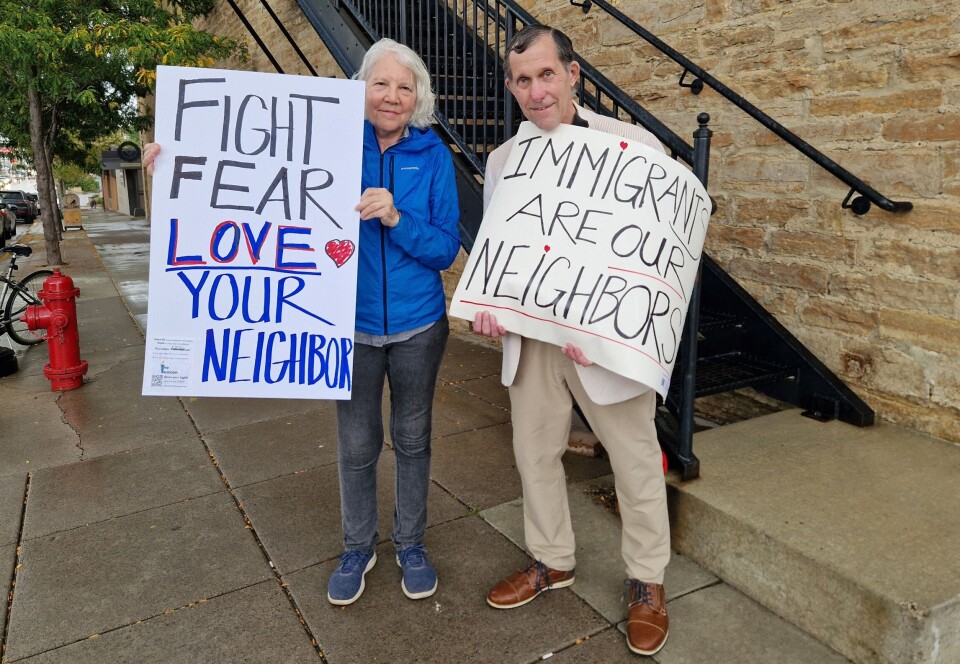 FIGHT
FEAR
LOVE
YOUR
NEIGHBOR
IMMIGRANTS
ARE OUR
NEIGHBORS